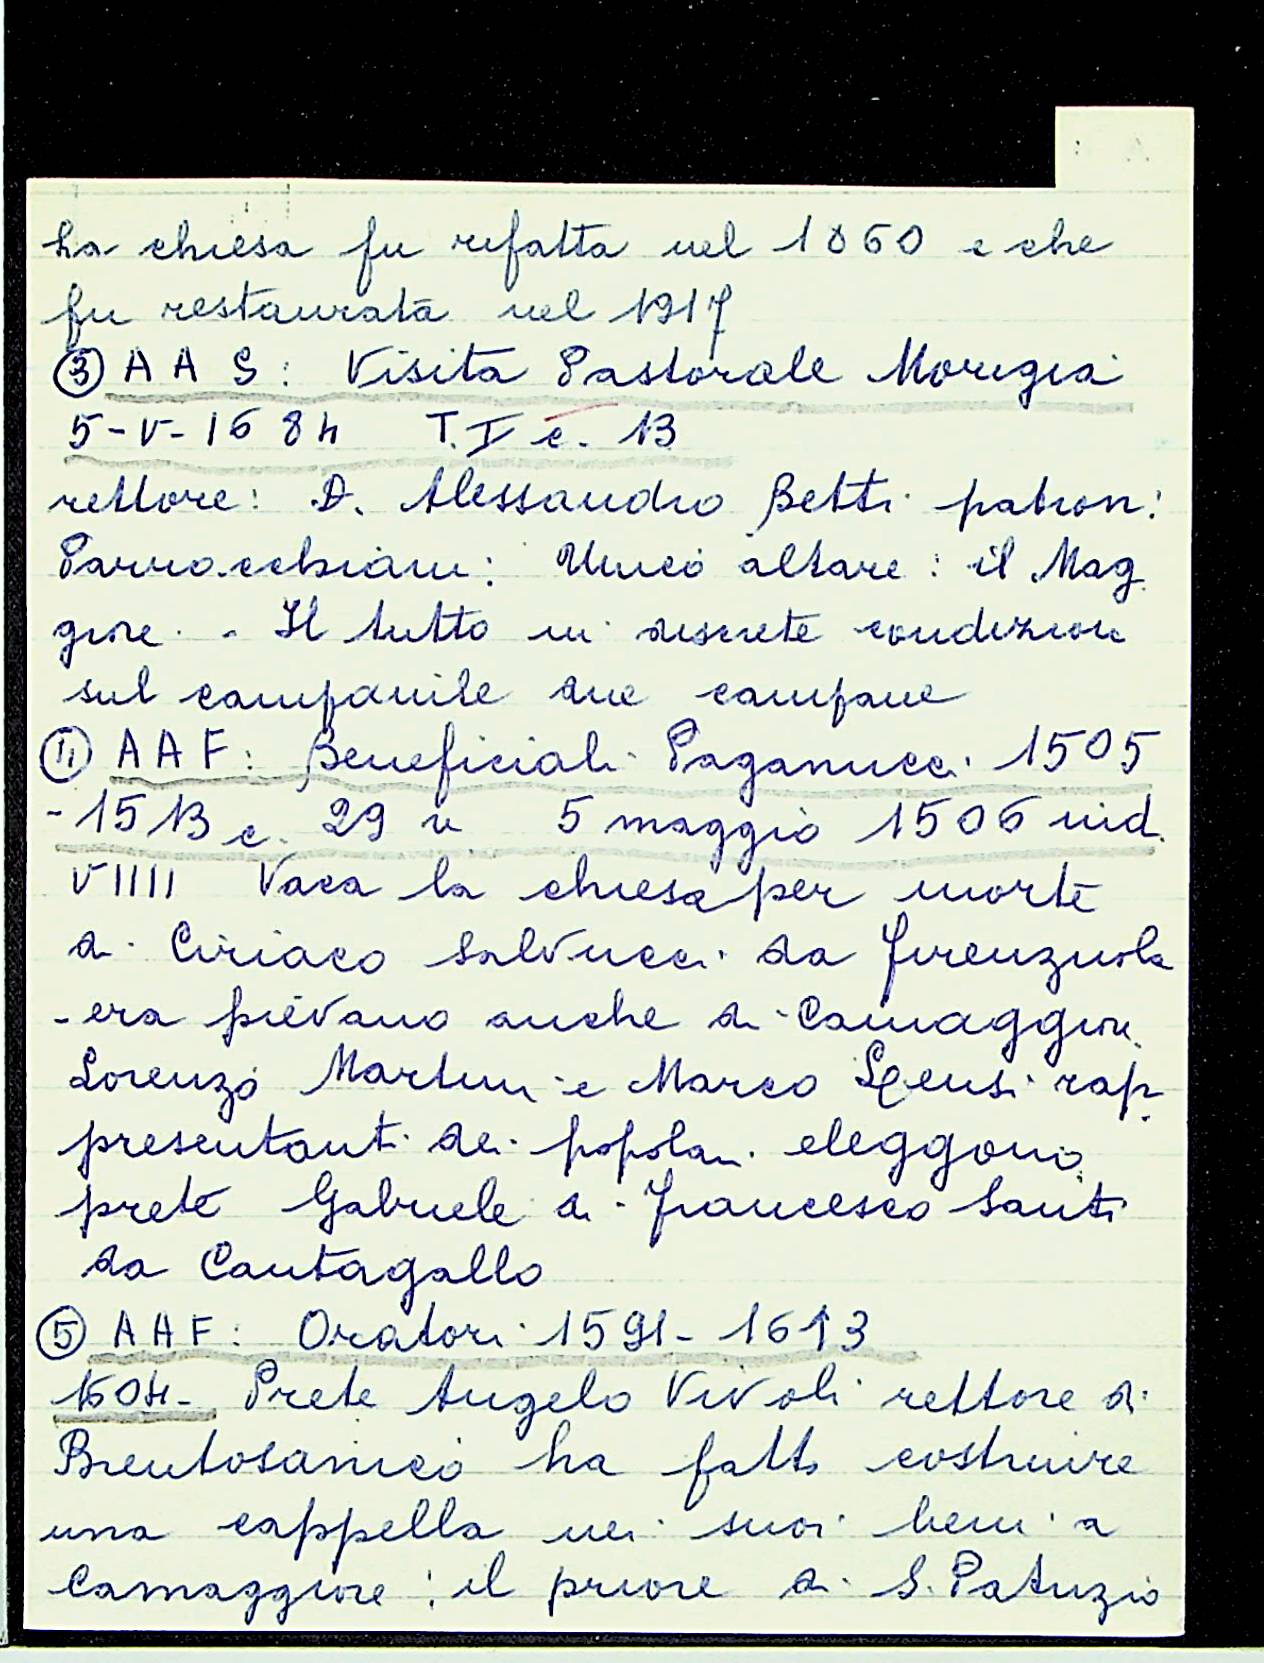 La chiesa fu rifatta nel 1860 e che
fu restaurata nel 1917
③ A A F: Visita Pastorale Morigia
5-V-1684 T. I c. 13
rettore: D. Alessandro Betti patroni
Parrocchiani: Unico altare: il Mag
giore. - Il tutto in discrete condizioni
sul campanile due campane
④ A A F: Beneficiali Paganucci 1505
-1513 c. 29 v 5 maggio 1506 ind.
VIIII Vaca la chiesa per morte
di Ciriaco Salvucci da Firenzuola
- era pievano anche di Camaggiore.
Lorenzo Martini e Marco Lensi rap
presentanti dei popolani eleggono
prete Gabriele di Francesco Santi
da Cantagallo
⑤ A A F: Oratori 1591-1613
1604- Prete Angelo Vivoli rettore di
Brentosanico ha fatto costruire
una cappella nei suoi beni a
Camaggiore: il priore di S. Patrizio